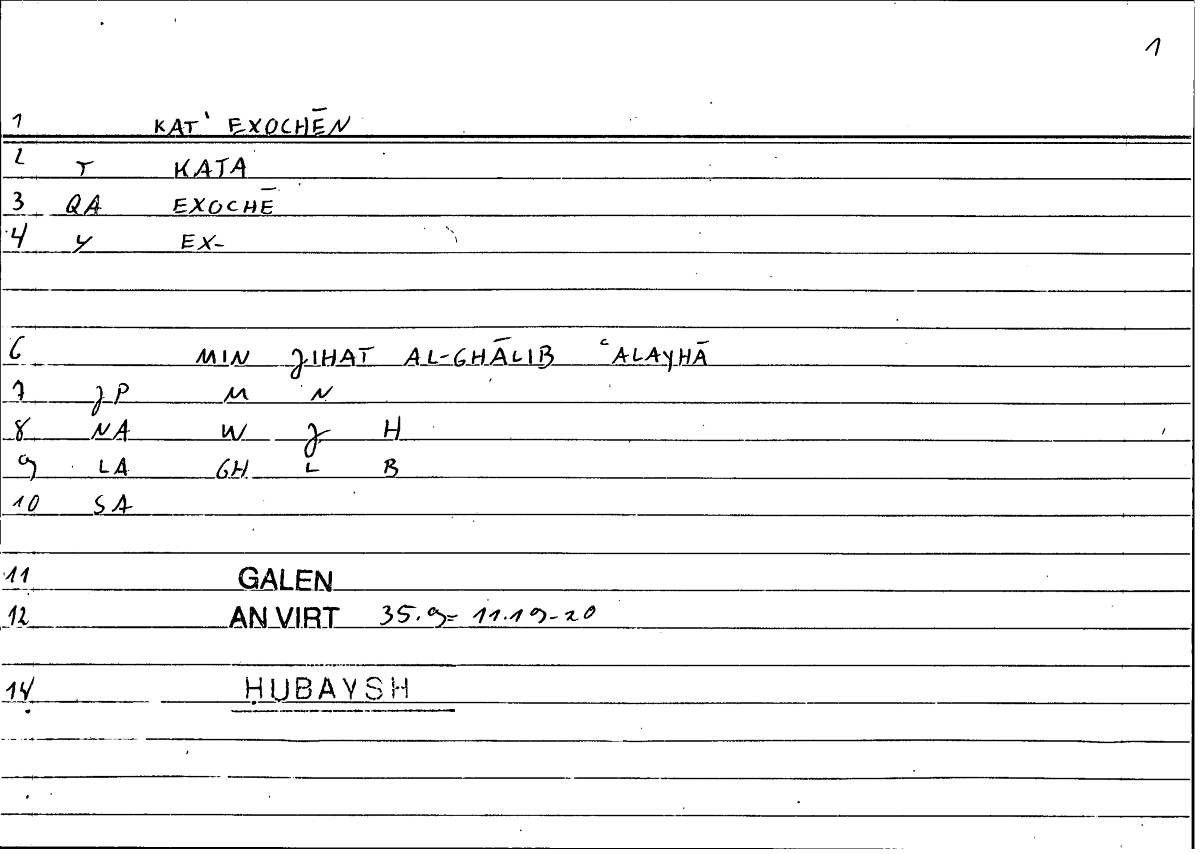 1
1 KAT' EXOCHĒN
2 T KATA
3 QA EXOCHĒ
4 Y EX-
6 MIN JIHAT AL-GHĀLIB ʿALAYHĀ
7 JP M N
8 NA W J H
9 LA GH L B
10 SA
11 GALEN
12 AN VIRT 35.9= 11.19-20
14 ḤUBAYSH